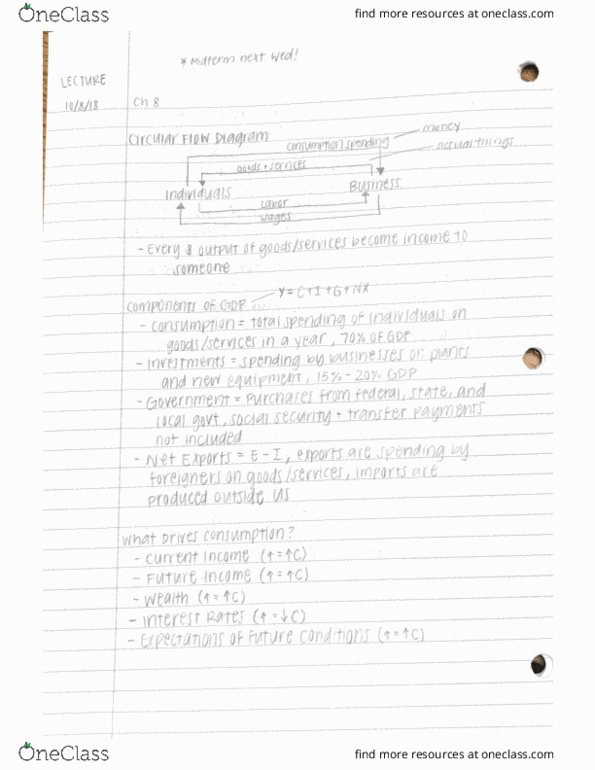 OneClass
find more resources at oneclass.com
* Midterm next Wed!
LECTURE
10/8/18
Ch 8
Circular Flow Diagram
money
consumption spending
actual things
Goods + services
Individuals
Business
Labor
wages
- Every $ output of goods/services become income to
someone
Components of GDP
Y = C+I+G+NX
- Consumption = total spending of individuals on
goods/services in a year, 70% of GDP
- Investments = spending by businesses on plants
and new equipment, 15% - 20% GDP
- Government = Purchases from federal, state, and
local govt, social security + transfer payments
not included
- Net Exports = E - I, exports are spending by
foreigners on goods/services, imports are
produced outside US
What drives consumption?
- Current Income (↑=↑C)
- Future Income (↑=↑C)
- Wealth (↑=↑C)
- Interest Rates (↑=↓C)
- Expectations of Future Conditions (↑=↑C)
OneClass
find more resources at oneclass.com